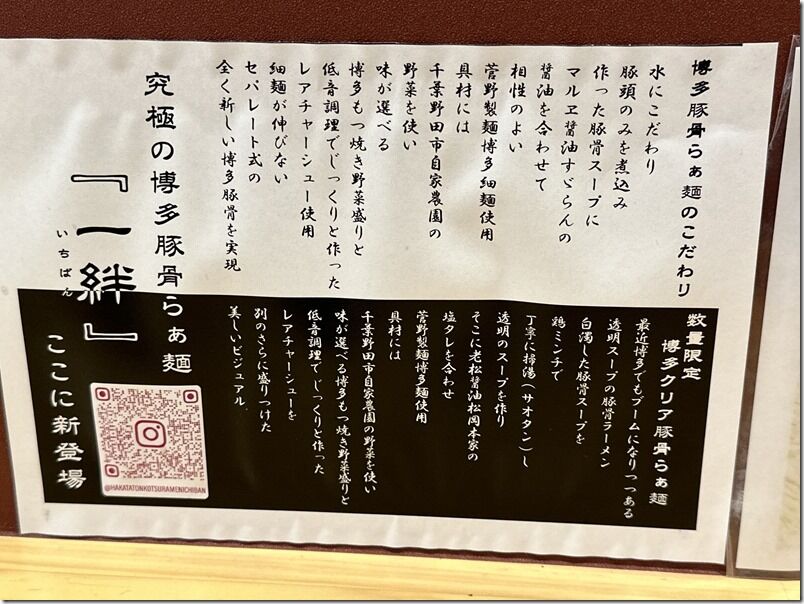 博多豚骨らぁ麺のこだわり
水にこだわり
豚頭のみを煮込み
作った豚骨スープに
マルヱ醤油すゞらんの
醤油を合わせて
相性のよい
菅野製麺博多細麺使用
具材には
千葉野田市自家農園の
野菜を使い
味が選べる
博多もつ焼き野菜盛りと
低音調理でじっくりと作った
レアチャーシュー使用
細麺が伸びない
セパレート式の
全く新しい博多豚骨を実現
数量限定
博多クリア豚骨らぁ麺
最近博多でもブームになりつつある
透明スープの豚骨ラーメン
白濁した豚骨スープを
鶏ミンチで
丁寧に掃湯(サオタン)し
透明のスープを作り
そこに老松醤油松岡本家の
塩タレを合わせ
菅野製麺博多麺使用
具材には
千葉野田市自家農園の野菜を使い
味が選べる博多もつ焼き野菜盛りと
低音調理でじっくりと作った
レアチャーシューを
別のさらに盛りつけた
美しいビジュアル
究極の博多豚骨らぁ麺
『一絆』
いちばん
ここに新登場
@HAKATATONKOTSURAMENICHIBAN